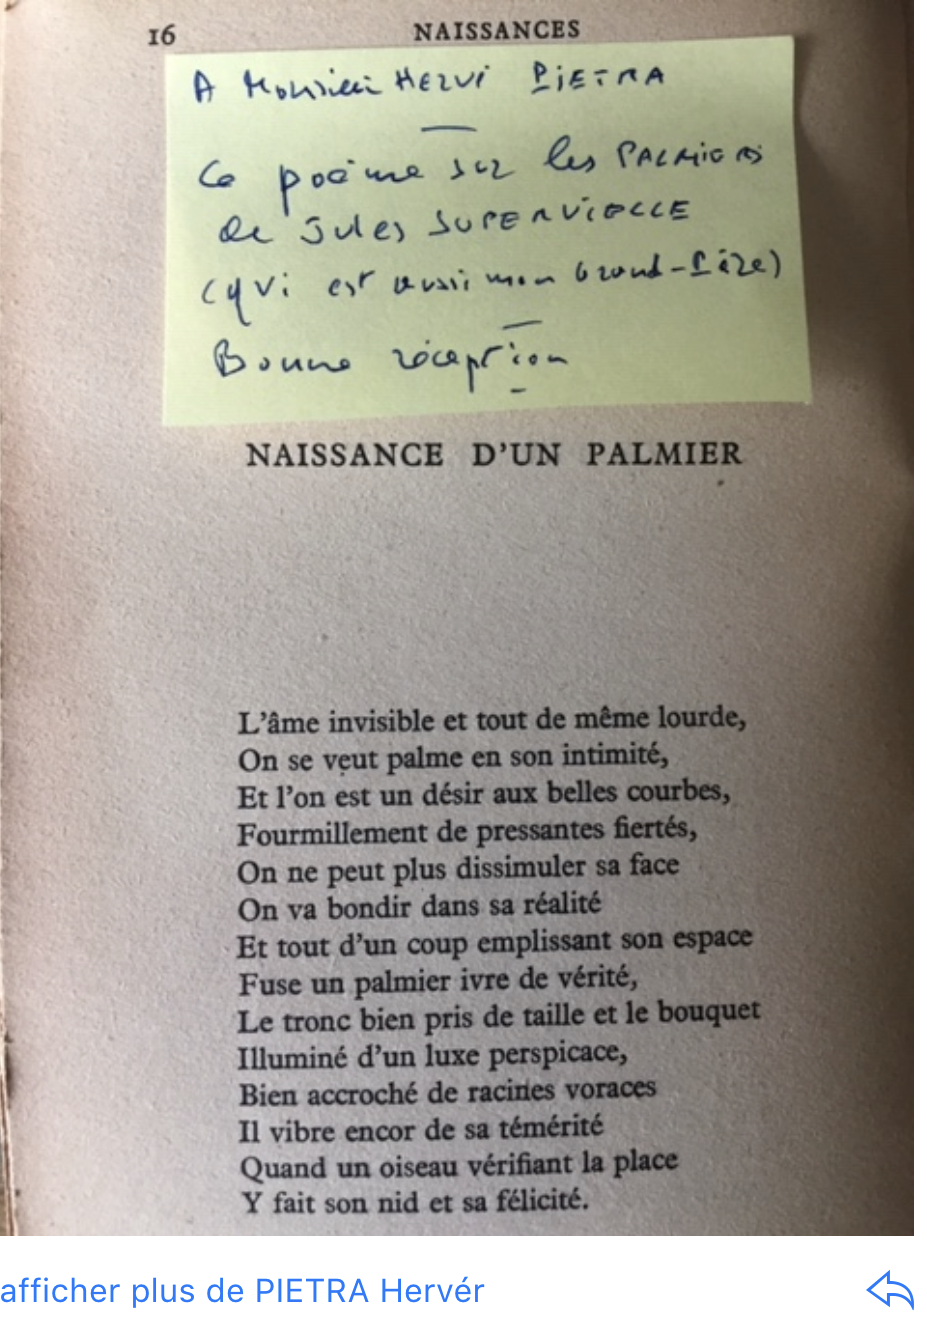 16 NAISSANCES
A Monsieur HERVÉ PIETRA
Ce poème sur les PALMIERS
de Jules SUPERVIELLE
(qui est aussi mon Grand-Père)
Bonne réception
NAISSANCE D'UN PALMIER
L'âme invisible et tout de même lourde,
On se veut palme en son intimité,
Et l'on est un désir aux belles courbes,
Fourmillement de pressantes fiertés,
On ne peut plus dissimuler sa face
On va bondir dans sa réalité
Et tout d'un coup emplissant son espace
Fuse un palmier ivre de vérité,
Le tronc bien pris de taille et le bouquet
Illuminé d'un luxe perspicace,
Bien accroché de racines voraces
Il vibre encor de sa témérité
Quand un oiseau vérifiant la place
Y fait son nid et sa félicité.
afficher plus de PIETRA Hervér